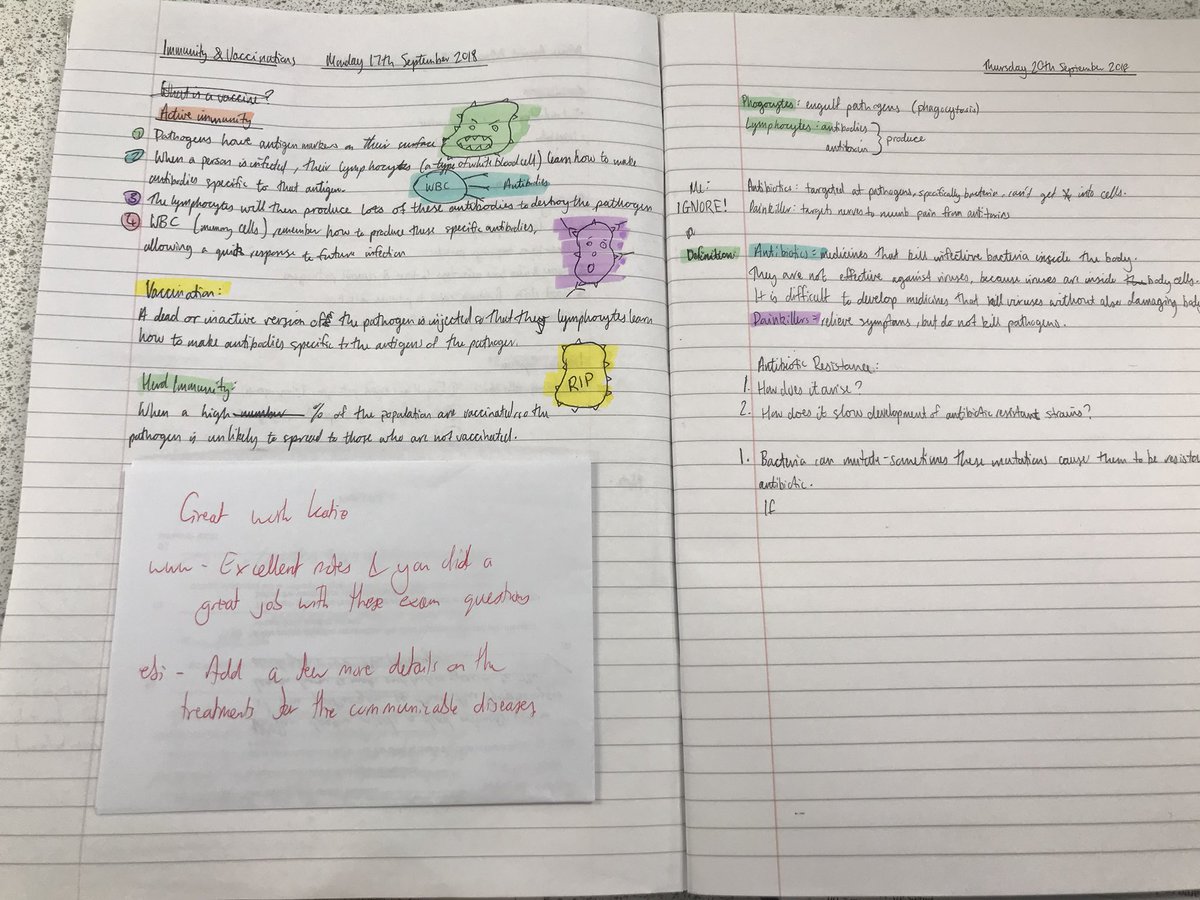 Immunity & Vaccinations Monday 17th September 2018
What is a vaccine?
Active immunity
1 Pathogens have antigen markers on their surface
2 When a person is infected, their lymphocytes (a type of white blood cell) learn how to make
antibodies specific to that antigen.
WBC Antibodies
3 The lymphocytes will then produce lots of these antibodies to destroy the pathogen
4 WBC (memory cells) remember how to produce these specific antibodies,
allowing a quick response to future infection
Vaccination:
A dead or inactive version of the pathogen is injected so that they lymphocytes learn
how to make antibodies specific to the antigens of the pathogen.
RIP
Herd Immunity:
When a high number % of the population are vaccinated so the
pathogen is unlikely to spread to those who are not vaccinated.
Great work Katie
www - Excellent notes & you did a
great job with these exam questions
ebi - Add a few more details on the
treatments for the communicable diseases
Thursday 20th September 2018
Phagocytes: engulf pathogens (phagocytosis)
Lymphocytes: antibodies
antitoxin } produce
Me: Antibiotics: targeted at pathogens, specifically bacteria, can't get into cells.
IGNORE! Painkiller: targets nerves to numb pain from antitoxins
Definition: Antibiotics = medicines that kill infective bacteria inside the body.
They are not effective against viruses, because viruses are inside the body cells.
It is difficult to develop medicines that kill viruses without also damaging body
Painkillers = relieve symptoms, but do not kill pathogens.
Antibiotic Resistance:
1. How does it arise?
2. How does it slow development of antibiotic resistant strains?
1. Bacteria can mutate - sometimes these mutations cause them to be
antibiotic.
If